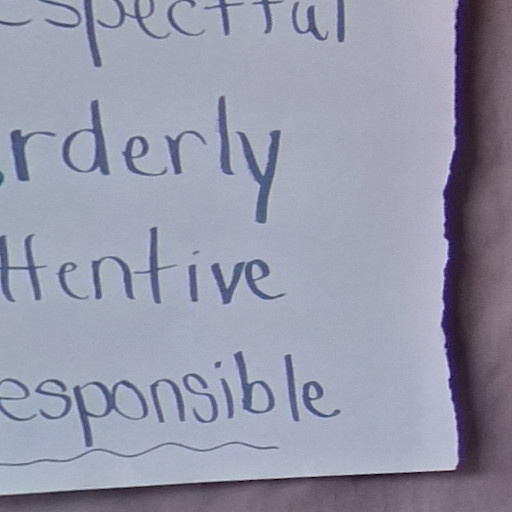 espectful
rderly
ttentive
esponsible